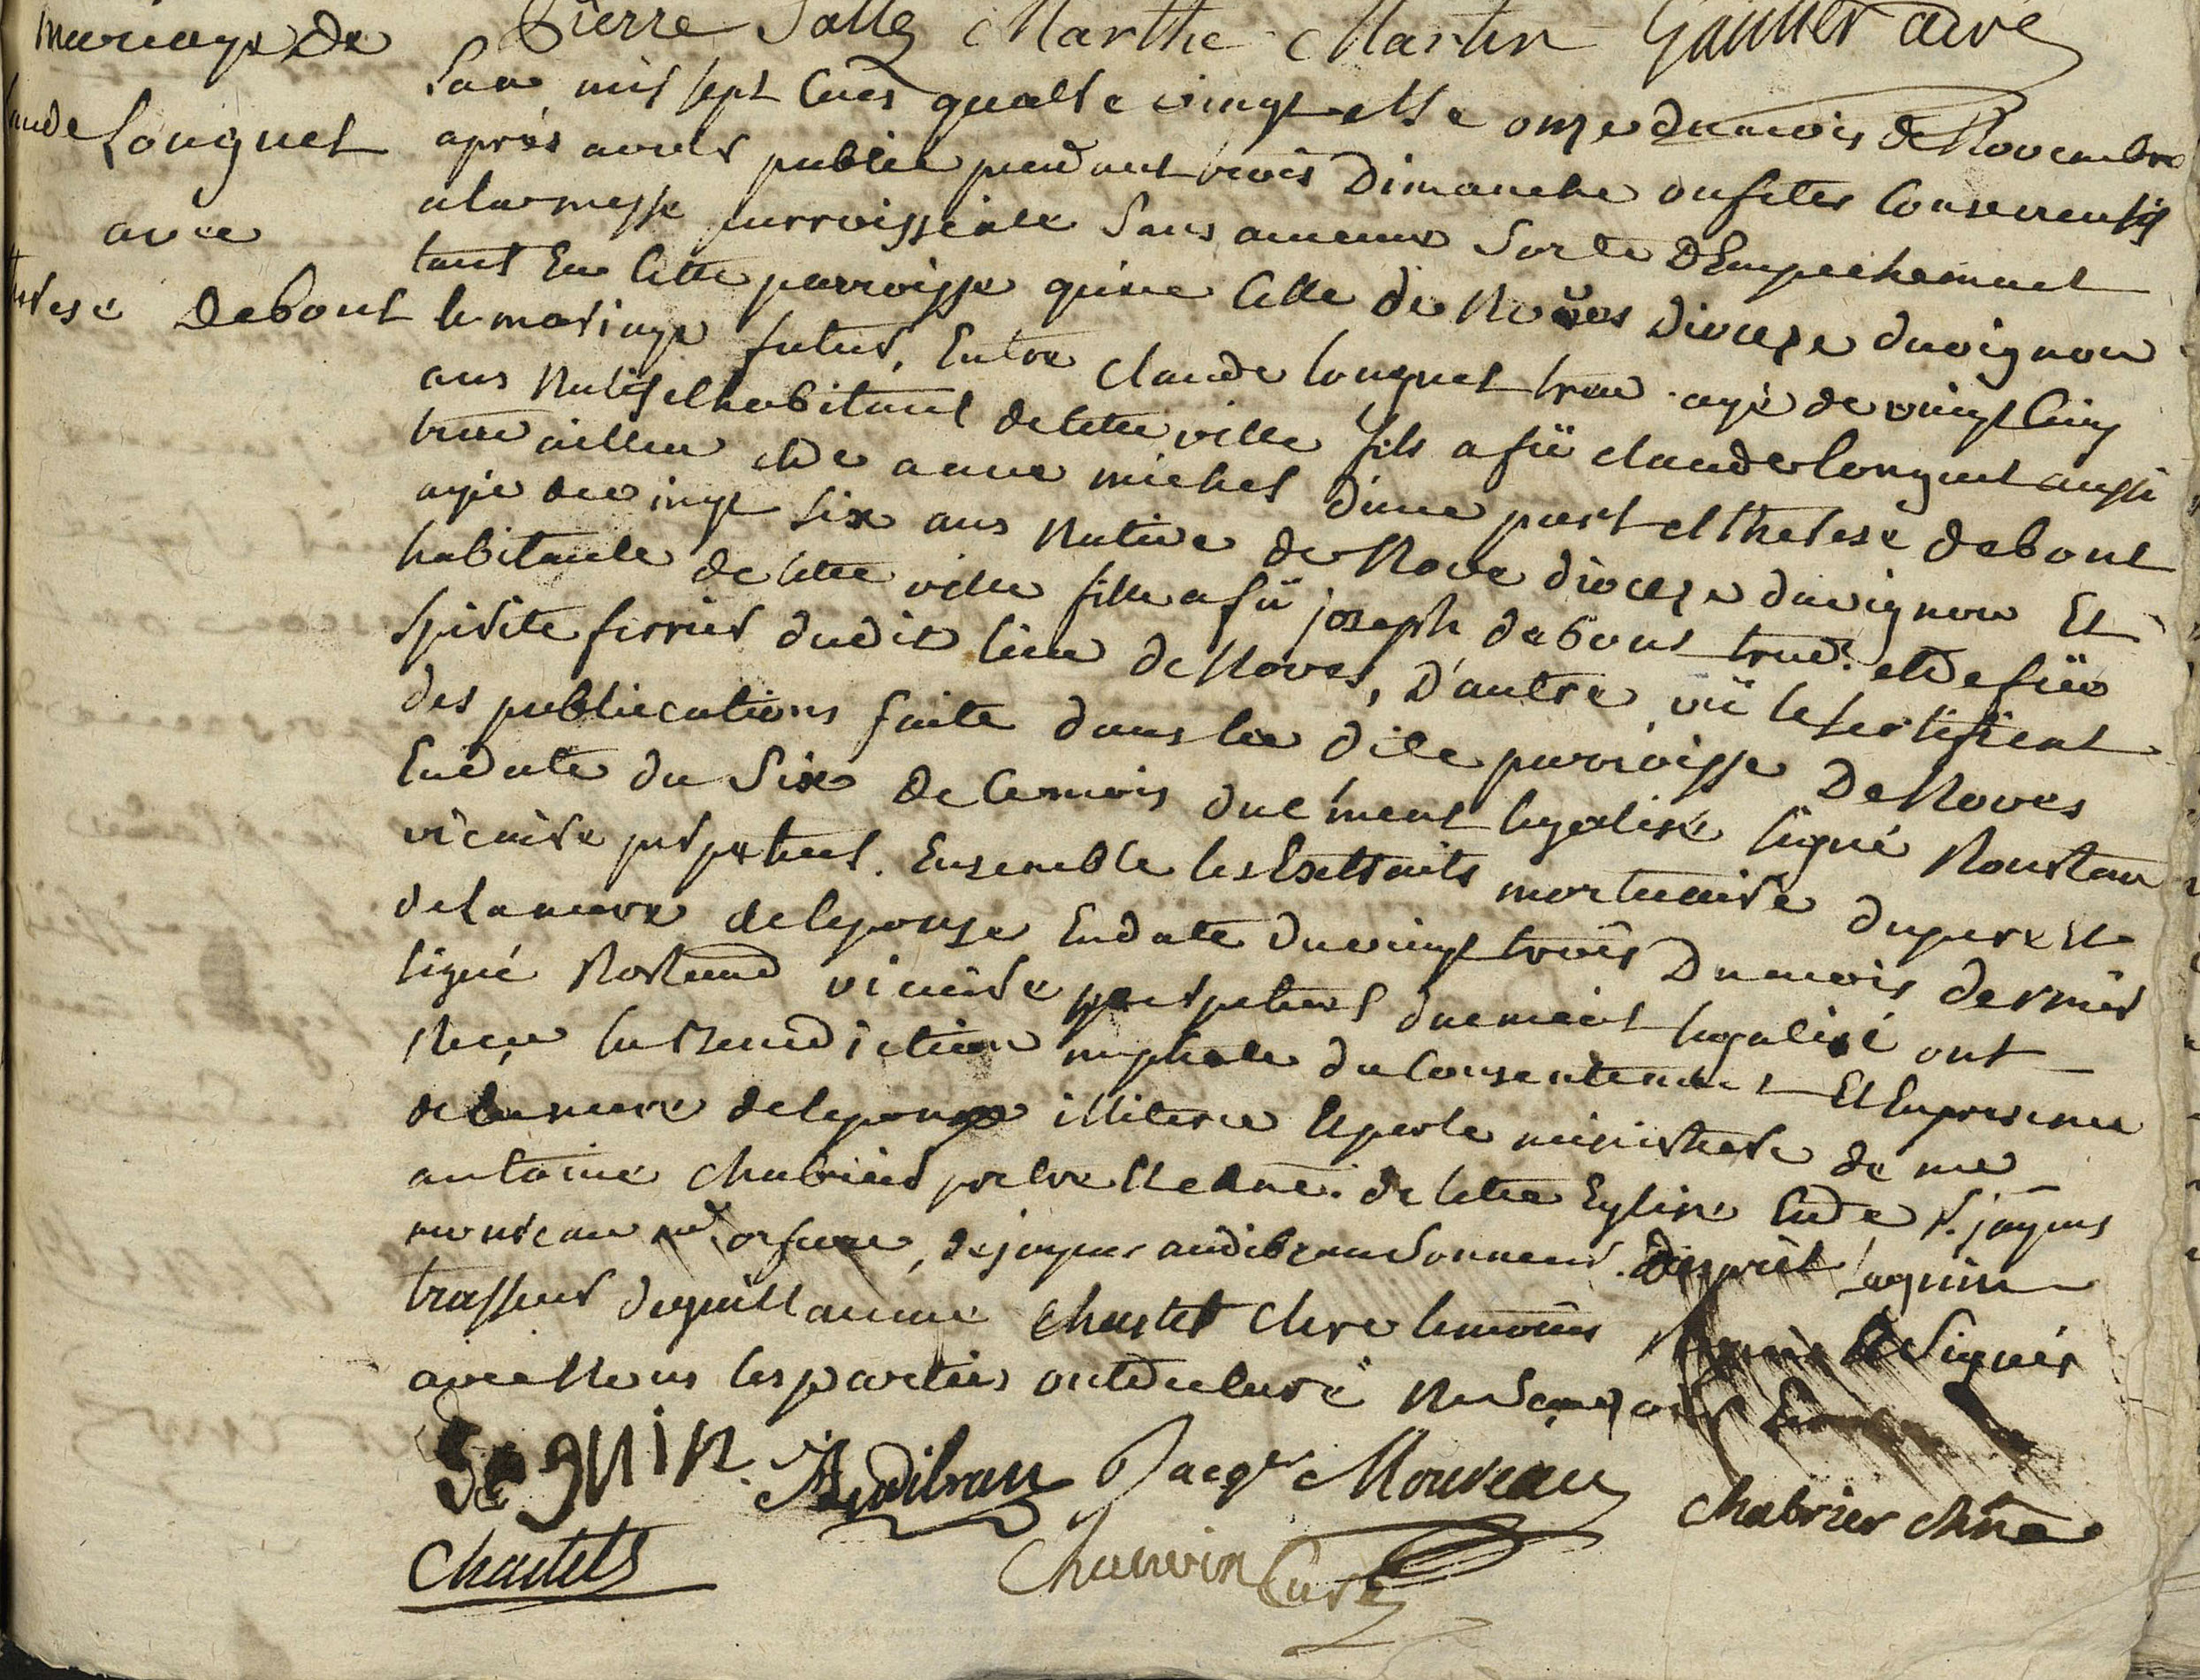 Pierre Salle Marthe Martin Gautier curé
mariage de
Claude Longuet
avec
therese Debout
Lan mil sept cens quatre vingt et le onze du mois de Novembre
aprés avoir publié pendant trois Dimanche ou fetes consecutifs
a la messe parroissiale sans aucune sorte d'Empechement
tant En cette parroisse qu'en celle de Noves Diocese davignon
le mariage futur, Entre claude longuet trav. agé de vingt cinq
ans Natif et habitant de cette ville fils a fû claude longuet aussi
travailleur et de anne michel d'une part et therese debout
agée de vingt six ans native de Nove diocese davignon Et
habitante de cette ville fille a fû joseph debout trav.r et de fûe
spirite ferrier dudit lieu de Noves, D'autre, vû le sertificat
des publications faite dans la dite parroisse De Noves
En date du Six de ce mois duement legalisé signé Roustan
vicaire perpetuel. Ensemble les Extraits mortuaire du pere et
de la mere de lepouse En date du vingt trois Du mois dernier
signé Rostand vicaire perpetuel duement legalisé ont
Reçu la Benediction nuptiale du Consentement Et En presence
de la mere de lepoux illiteree Et par le ministere de me
antoine chabrier pretre et chne. de cette Eglise En de Sr. jaques
moureau md. orfevre, de jaques audibran sonneur. seguin
trasseur de guillaume chastel clerc temoins Requis et Signés
avec Nous les parties ont declaré ne sçavoir
Seguin. Audibran Jacqs Moureau
Chabrier chne
Chastel Chauvin Curé